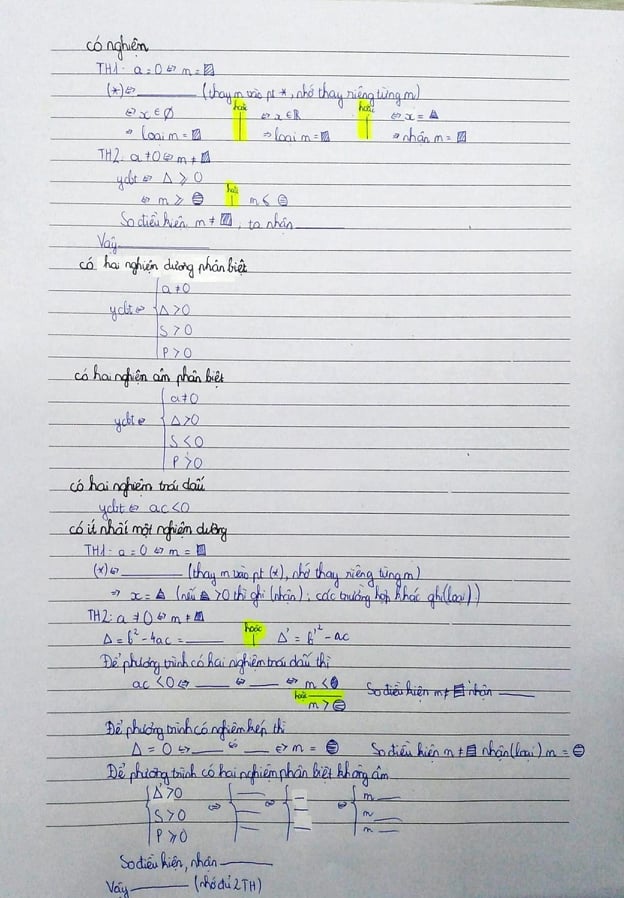 có nghiệm
TH1: a = 0 ⇔ m = ▨
(*) ⇔ ______ (thay m vào pt *, nhớ thay riêng từng m)
⇔ x ∈ ∅ hoặc ⇔ x ∈ ℝ hoặc ⇔ x = ▲
⇒ loại m = ▨ ⇒ loại m = ▨ ⇒ nhận m = ▨
TH2: a ≠ 0 ⇔ m ≠ ▨
ycbt ⇔ Δ ⩾ 0
⇔ m ⩾ ⊜ hoặc m ⩽ ⊜
So điều kiện m ≠ ▨, ta nhận ______
Vậy ______
có hai nghiệm dương phân biệt
ycbt ⇔ { a ≠ 0
Δ > 0
S > 0
P > 0
có hai nghiệm âm phân biệt
ycbt ⇔ { a ≠ 0
Δ > 0
S < 0
P > 0
có hai nghiệm trái dấu
ycbt ⇔ ac < 0
có ít nhất một nghiệm dương
TH1: a = 0 ⇔ m = ▨
(*) ⇔ ______ (thay m vào pt (*), nhớ thay riêng từng m)
⇒ x = ▲ (nếu ▲ > 0 thì ghi (nhận); các trường hợp khác ghi (loại))
TH2: a ≠ 0 ⇔ m ≠ ▨
Δ = b² - 4ac = ____ hoặc Δ' = b'² - ac
Để phương trình có hai nghiệm trái dấu thì
ac < 0 ⇔ ____ ⇔ ____ ⇔ m < ⊜ So điều kiện m ≠ ▤ nhận ____
hoặc
m > ⊜
Để phương trình có nghiệm kép thì
Δ = 0 ⇔ ____ ⇔ ____ ⇔ m = ⊜ So điều kiện m ≠ ▤ nhận (loại) m = ⊜
Để phương trình có hai nghiệm phân biệt không âm
{ Δ > 0 ⇔ { ____ ⇔ { ____ ⇔ { m ____
S > 0 ____ ____ m ____
P ⩾ 0 ____ ____ m ____
So điều kiện, nhận ____
Vậy ____ (nhớ đủ 2TH)